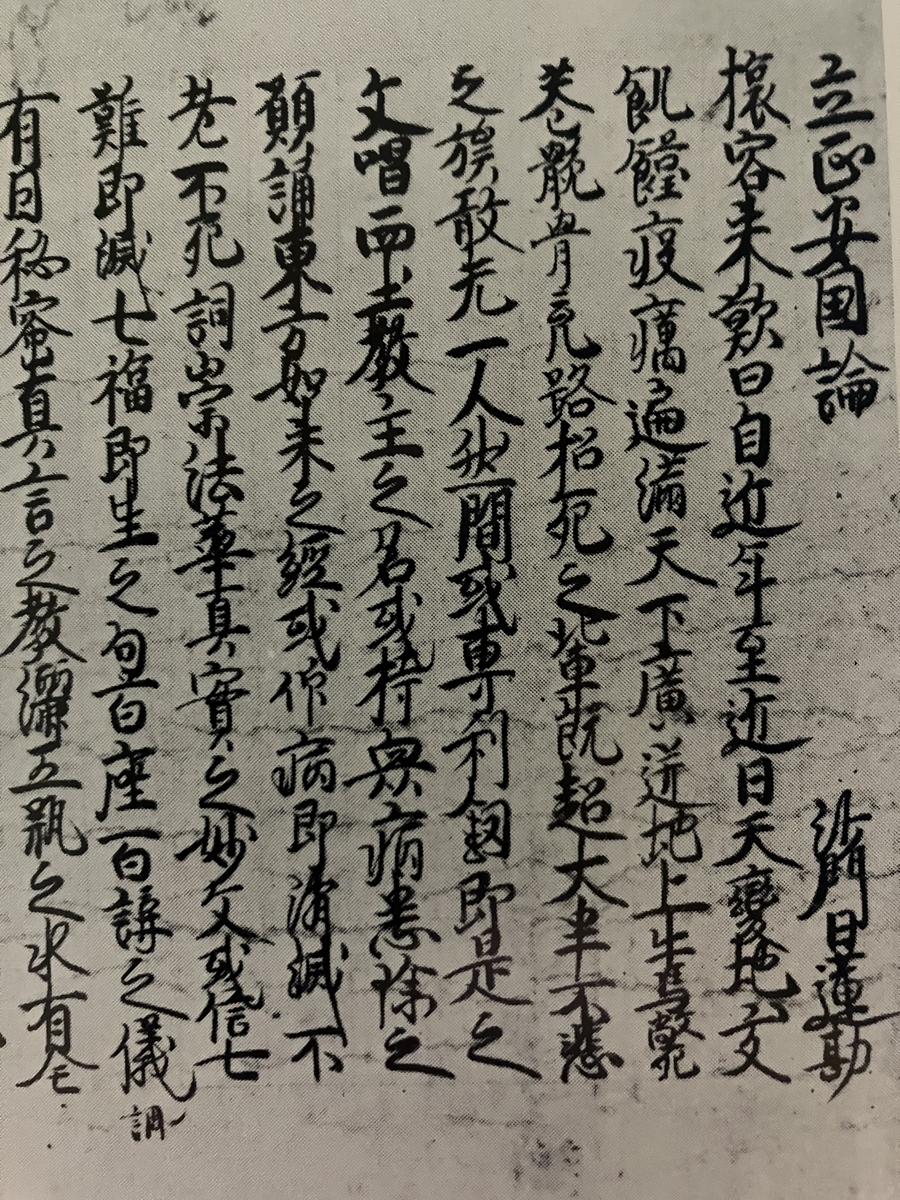 立正安国論 沙門日蓮勘
旅客来歎曰自近年至近日天變地夭
飢饉疫癘遍満天下廣迸地上牛馬斃
巷骸骨充路招死之輩既超大半不悲
之族敢无一人然間或専利釼即是之
文唱西土教主之名或持衆病悉除之
願誦東方如来之經或仰病即消滅不
老不死詞崇法華真實之妙文或信七
難即滅七福即生之句百座百講之儀調
有因秘密真言之教灑五瓶之水有全